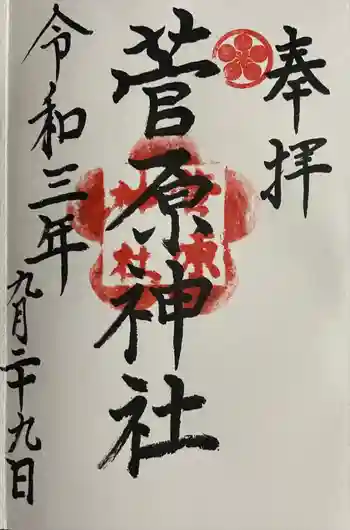 奉拝
菅原神社
令和三年
九月二十九日